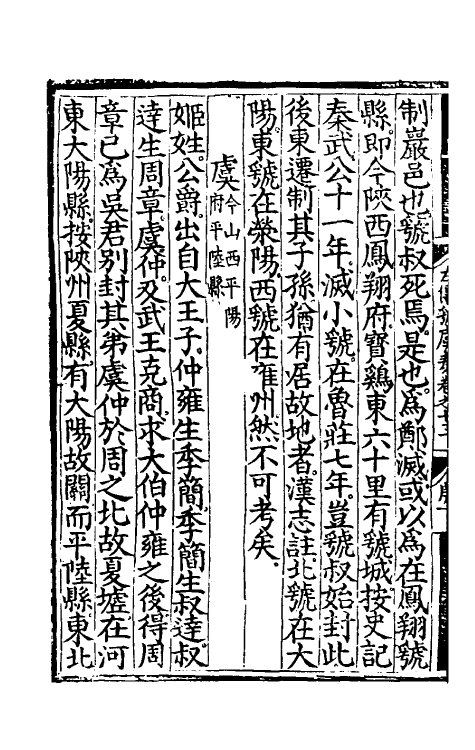 制巖邑也虢叔死焉是也為鄭滅或以為在鳳翔虢
縣即今陜西鳳翔府寶鷄東六十里有虢城按史記
秦武公十一年滅小虢在魯莊七年豈虢叔始封此
後東遷制其子孫猶有居故地者漢志註北虢在大
陽東虢在滎陽西虢在雍州然不可考矣
虞今山西平陽府平陸縣
姬姓公爵出自大王子仲雍生季簡季簡生叔達叔
達生周章虞仲及武王克商求大伯仲雍之後得周
章已為吳君別封其弟虞仲於周之北故夏墟在河
東大陽縣按陜州夏縣有大陽故關而平陸縣東北